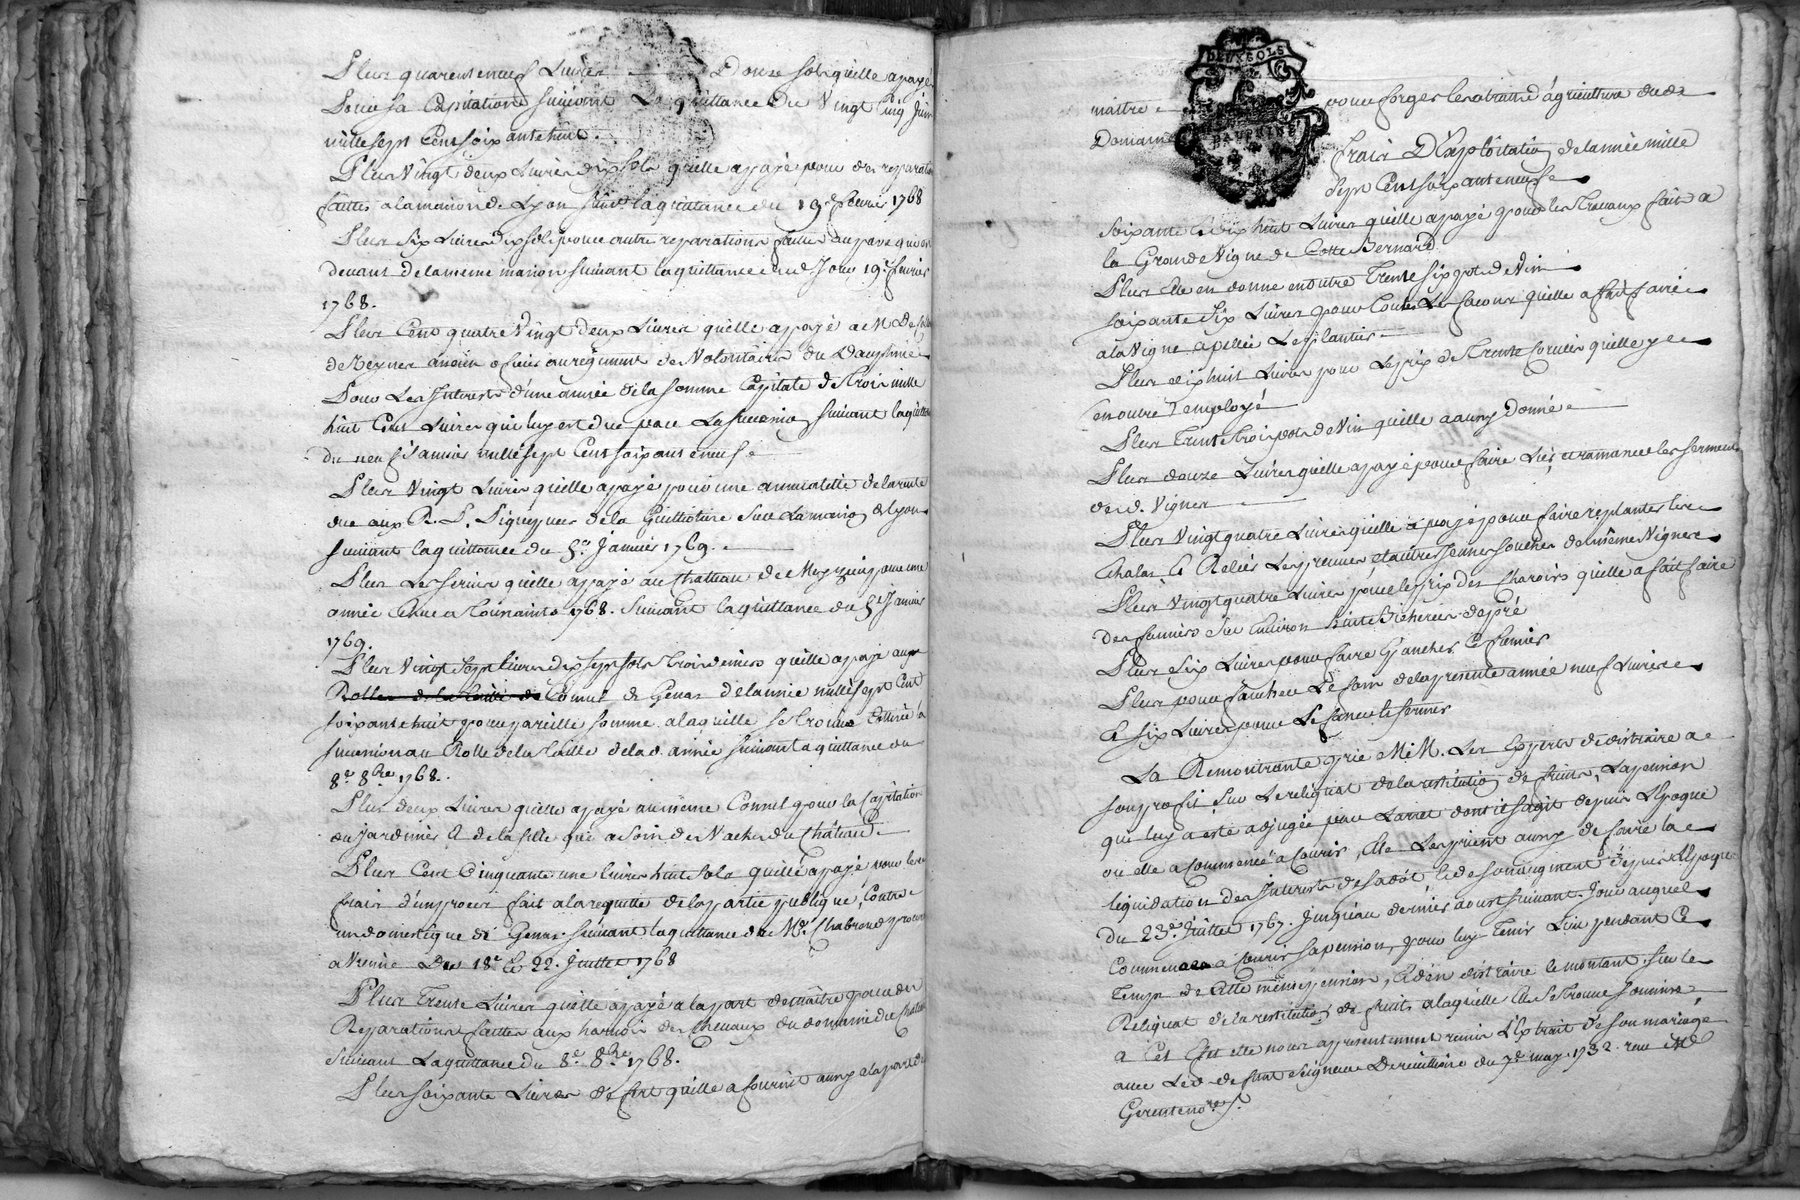 Plus quarente neuf Livres Douze sols qu'elle a payé
Pour sa Capitation suivant La quittance du Vingt Cinq Juin
mille sept Cent soixante huit.
Plus Vingt deux Livres dix sols qu'elle a payé pour des reparations
faittes a la maison de Lyon suivt la quittance du 19e fevrier 1768
Plus six Livres dix sols pour autre reparations faittes au pavé qui
devant de la meme maison suivant la quittance du d. Jour 19e fevrier
1768.
Plus Cent quatre Vingt deux Livres qu'elle a payé a M. De
de Reynes ancien oficier au regiment de Volontaires du Dauphiné
Pour Les Interets d'une année de la somme Capitale de Trois mille
huit Cent Livres qui luy est due par La suivant la quittance
du neuf Janvier mille sept Cent soixante neuf
Plus Vingt Livres qu'elle a payé pour une annualitté de la rente
due aux R. P. Piquepuces de la Guillotiere sur La maison de Lyon
suivant la quittance du 5e Janvier 1769.
Plus Les servis qu'elle a payé au Chatteau de Meyzieu pour une
année Echue a Toussaints 1768. suivant la quittance du 5e Janvier
1769.
Plus Vingt Sept Livres dix sept sols Trois deniers qu'elle a payé aux
Rolles de la Taille de Consul de Genas de l'année mille sept Cent
soixante huit pour pareille somme a laquelle se trouve Cottisée la
succession au Rolle de la Taille de la d. année suivant la quittance du
8e 8bre 1768.
Plus deux Livres qu'elle a payé au même Consul pour la Capitation
du Jardinier & de la fille qui a soin des Vaches du Château
Plus Cent Cinquante une livres huit sols qu'elle a payé pour les
frais d'un procès fait a la requette de la partie publique, Contre
un domestique de Genas suivant la quittance de Me Chabroud procur
a Vienne Des 18e & 22. Juillet 1768
Plus Trente Livres qu'elle a payé a la part de maitre pour des
Reparations faittes aux harnois des chevaux du domaine du Chateau
suivant La quittance du 8e 8bre 1768.
Plus soixante Livres de fert qu'elle a fournit aussy a la part de
DEUX SOLS
DAUPHINÉ
maitre pour forger les outils d'agriculture du d.
Domaine
frais D'Exploitation de l'année mille
sept Cent soixante neuf
soixante & dix huit Livres qu'elle a payé pour les Travaux fait a
la Grande Vigne de Cotte Bernard
Plus elle en donne en outre Trente six pots de Vin
soixante six Livres pour Toutes Les facons qu'elle a fait faire
a la Vigne apellée Les plantier
Plus dix huit Livres pour Le prix de Trente qu'elle y a
en outre Employé
Plus Trente Trois pots de Vin qu'elle a aussy donné
Plus douze Livres qu'elle a payé pour faire Lier et ramancer les serments
des d. Vignes
Plus Vingt quatre Livres qu'elle a payé pour faire replanter les
Chalas & Relier Les preuves & autres Jeunes souches de même Vignes
Plus Vingt quatre Livres pour le prix des charois qu'elle a fait faire
des fumiers sur Environ huit Bicherées de pré
Plus six Livres pour faire Epancher Ce fumier
Plus pour faucher Le foin de la presente année neuf Livres
& six Livres pour Le faner & fermer
La Remontrante prie M. M. Les Experts de distraire a
son profit sur Le reliquat de la restitution de fruits, La pension
que luy a esté adjugée par L'arret dont il s'agit depuis L'Epoque
ou elle a commencé a Courir, elle Les prient aussy de faire la
liquidation des Interets de sa dot & de son augment depuis L'Epoque
du 23e Juillet 1767. Jusqu'au dernier aoust suivant Jour auquel
Commence a Courir sa pension, pour luy Tenir Lieu pendant Ce
Temps de Cette même pension, & d'en distraire le montant sur le
Reliquat de la restitution de fruits a laquelle Elle se Trouve soumise
a Cet Effet elle nous a presentement remis L'Extrait de son mariage
avec Le d. defunt seigneur Dereuilliere du 7e may 1732. recu Me
Gerentet nore.